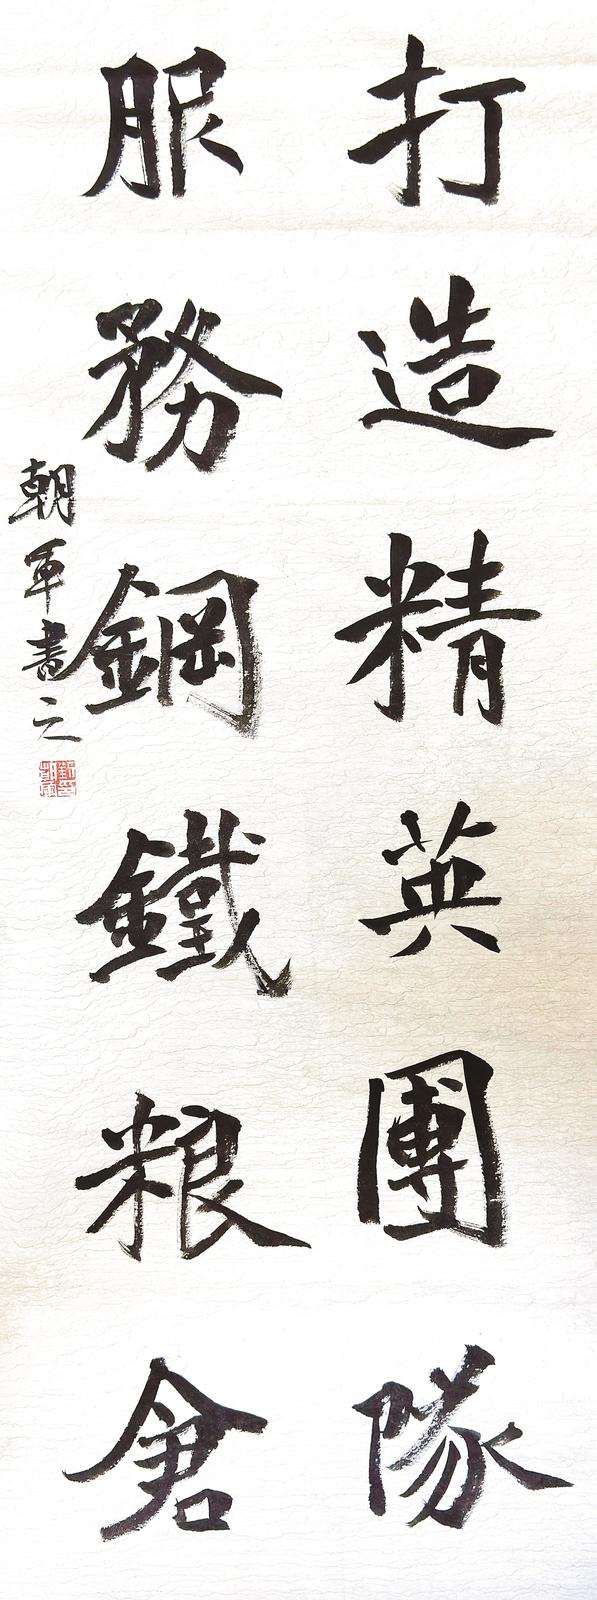 打造精英團隊
服務鋼鐵粮倉
朝軍書之